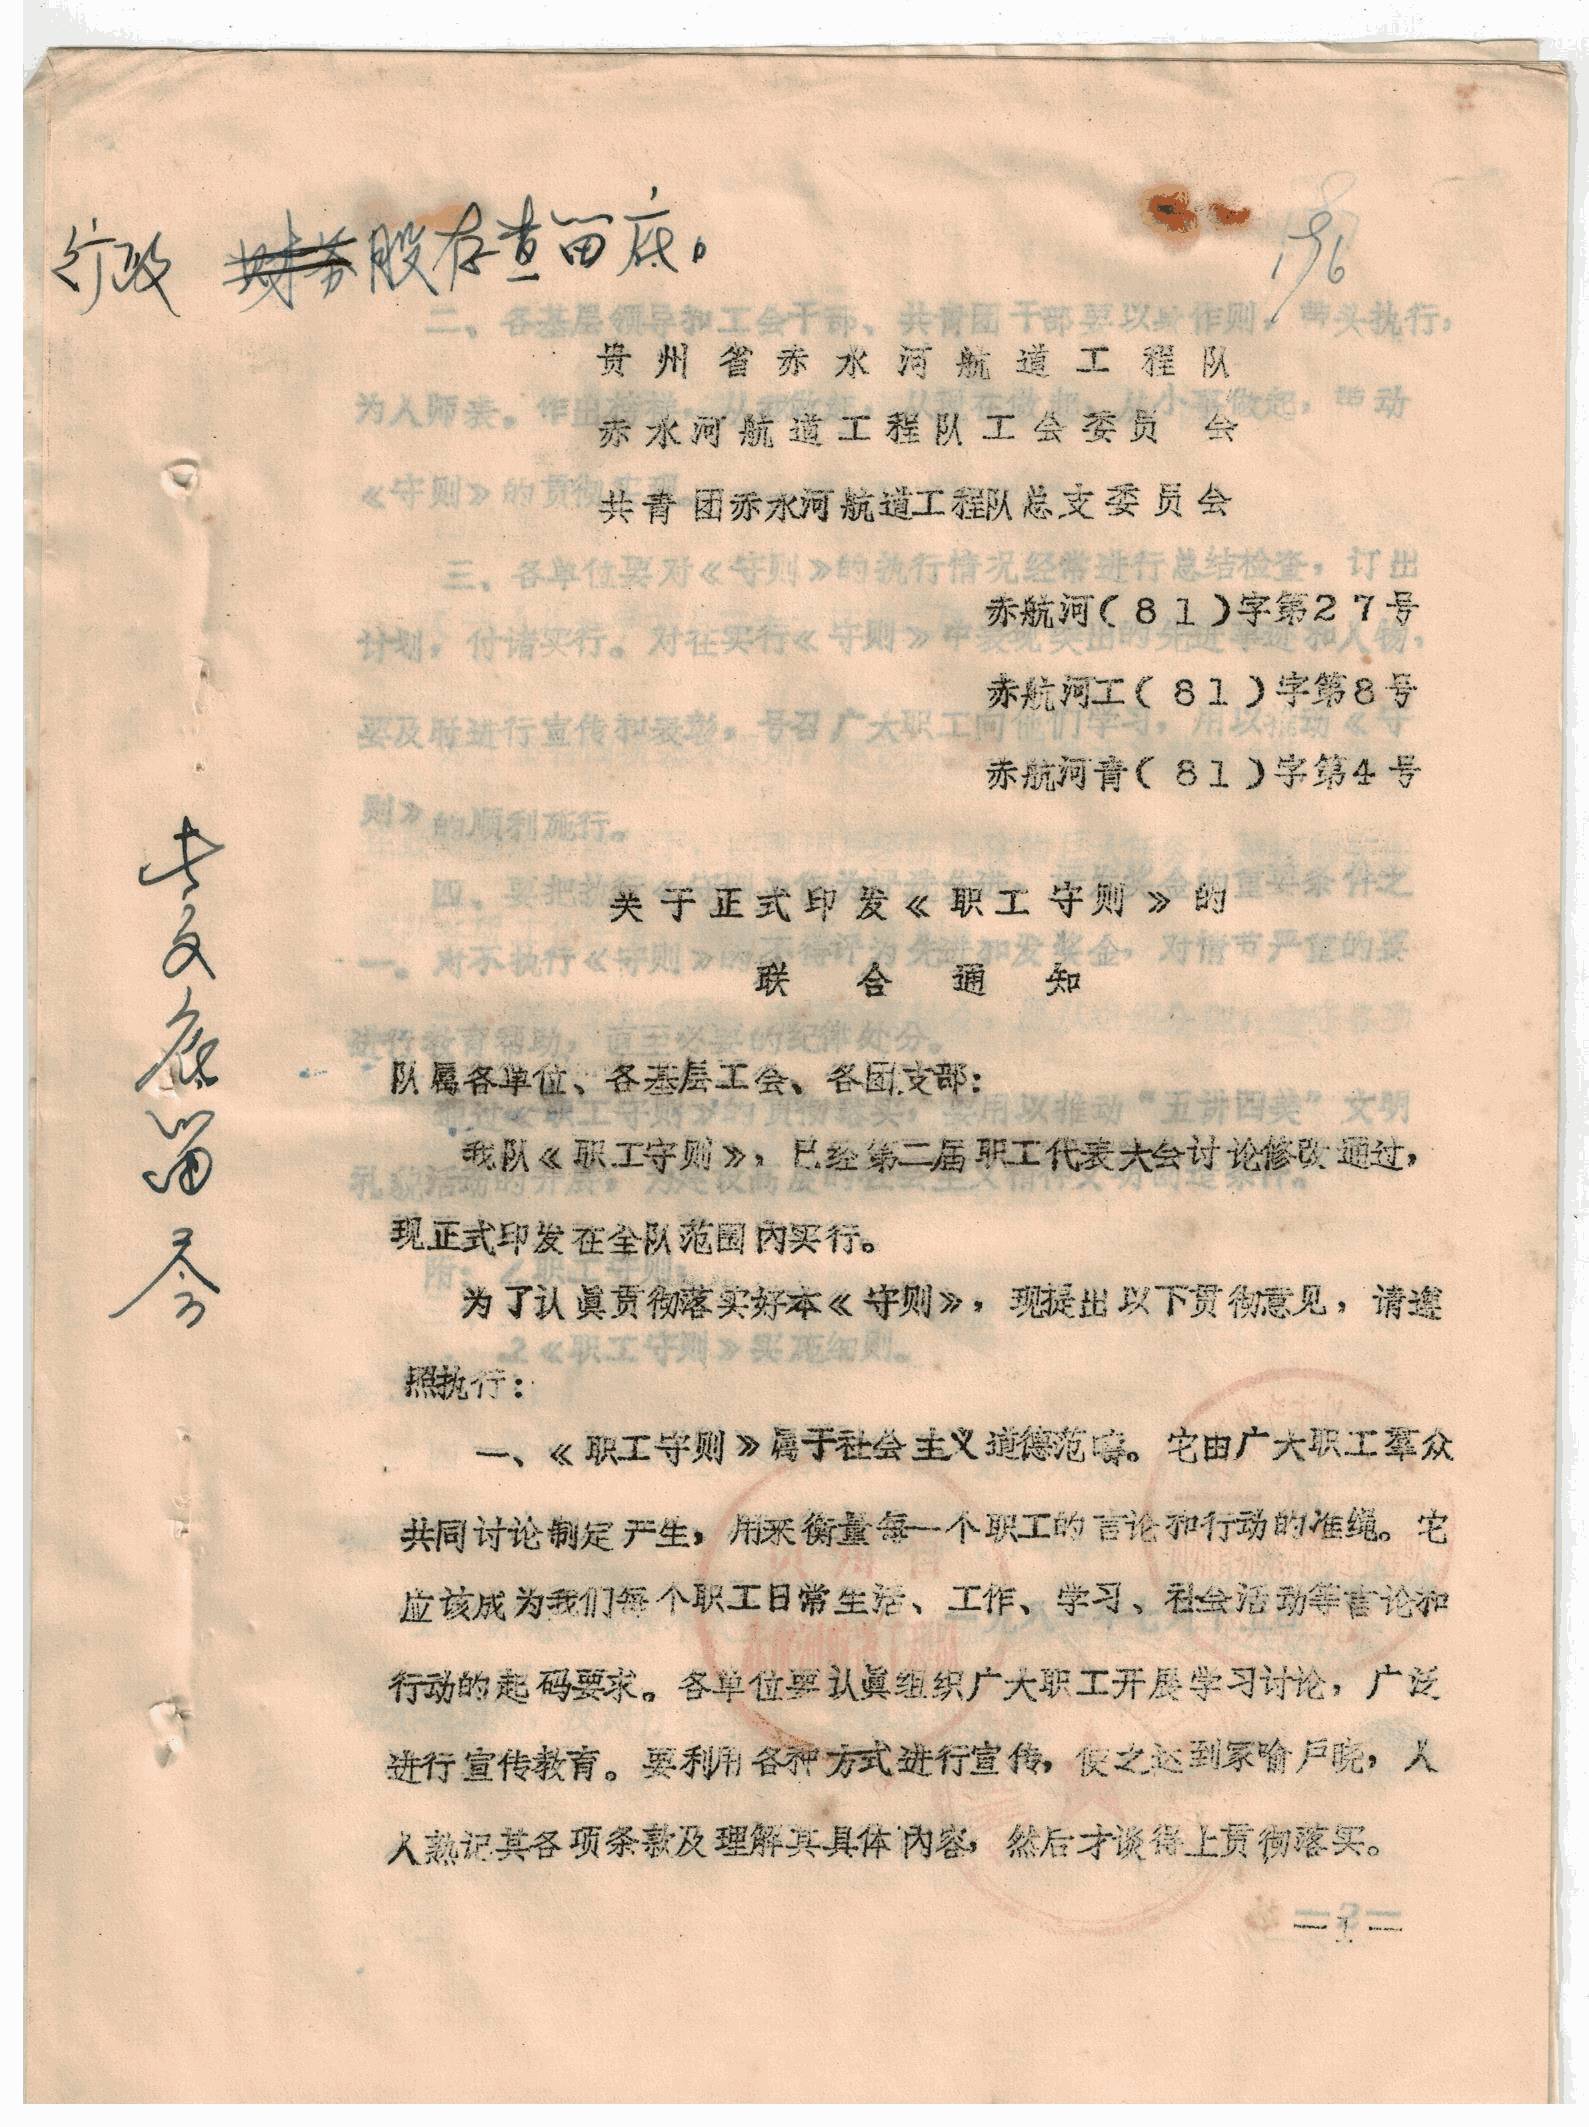 行政 财务股存查留底。
196
贵州省赤水河航道工程队
赤水河航道工程队工会委员会
共青团赤水河航道工程队总支委员会
赤航河(81)字第27号
赤航河工(81)字第8号
赤航河青(81)字第4号
关于正式印发《职工守则》的
联合通知
队属各单位、各基层工会、各团支部:
我队《职工守则》,已经第二届职工代表大会讨论修改通过,
现正式印发在全队范围内实行。
为了认真贯彻落实好本《守则》,现提出以下贯彻意见,请遵
照执行:
一、《职工守则》属于社会主义道德范畴。它由广大职工羣众
共同讨论制定产生,用来衡量每一个职工的言论和行动的准绳。它
应该成为我们每个职工日常生活、工作、学习、社会活动等言论和
行动的起码要求。各单位要认真组织广大职工开展学习讨论,广泛
进行宣传教育。要利用各种方式进行宣传,使之达到家喻户晓,人
人熟记其各项条款及理解其具体内容,然后才谈得上贯彻落实。
—1—